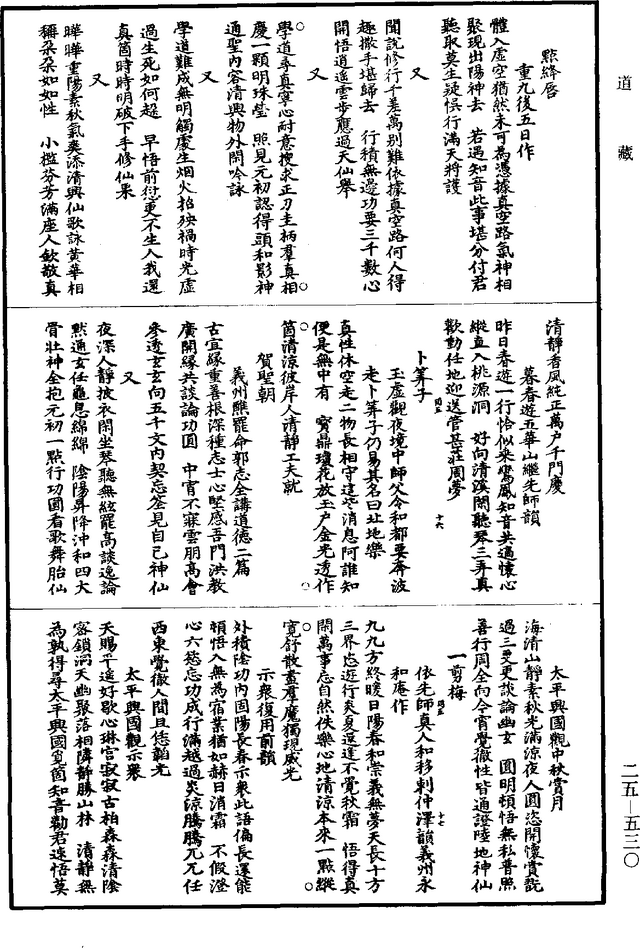 道藏
點絳唇
重九後五日作
體入虛空猶然未可為憑據真空路氣神相
聚現出陽神去　若遇知音此事堪分付君
聽取莫生疑悞行滿天將護
又
聞說修行千差萬別難依據真空路何人得
趣撒手堪歸去　行積無邊功要三千數心
開悟逍遙雲步應過天仙舉
又
學道尋真寧心耐意搜求正刃圭柄羣真相
慶一顆明珠瑩　照見元初認得頭和影神
通聖內容清興物外閑吟詠
又
學道難成無明觸處生烟火招殃禍時光虛
過生死如何趓　早悟前愆更不生人我還
真箇時時明破下手修仙果
又
曄曄重陽素秋氣爽添清興仙歌詠黃華相
稱朵朵如如性　小檻芬芳滿座人欽敬真
清靜香風純正萬戶千門慶
暮春遊五華山繼先師韻
昨日春遊一行恰似來鸞鳳知音共通懷心
縱直入桃源洞　好向清溪閑聽琴三弄真
歡動任他迎送管甚莊周夢
卜筭子
玉虛觀夜境中師父令和都要奔波
走卜筭子仍易其名曰址地樂
真性休空走二物長相守這些消息阿誰知
便是無中有　寶鼎瓊花放玉戶金光透作
箇清涼彼岸人清靜工夫就
賀聖朝
義州醮罷命郭志全講道德二篇
古宣緣重善根深種志士心堅感吾門洪教
廣開緣共談論功圓　中宵不寐雲朋高會
參透玄玄向五千文內契忘筌見自己神仙
又
夜深人靜披衣閑坐琴聽無絃罷高談逸論
默通玄任龜息綿綿　陰陽昇降沖和四大
骨壯神全抱元初一點行功圓看歌舞胎仙
太平興國觀中秋賞月
海清山靜素秋光滿涼夜人圓恣開懷賞翫
過三更談論幽玄　圓明頓悟無私普照
善行周全向今宵覺徹性皆通證陸地神仙
一剪梅
依先師真人和移剌仲澤韻義州永
和庵作
九九方終暖日陽春和崇義無夢天長十方
三界恣遊行炎夏逗逩不覺秋霜　悟得真
閑萬事忘自然佚樂心地清涼本來一點縱
寬舒散盡羣魔獨現威光
示衆復用前韻
外積陰功內固陽長春示衆此語偏長還能
頓悟入無為宿業猶如赫日消霜　不假澄
心六慾忘功成行滿越過炎涼騰騰兀兀任
西東覺徹人間且恁韜光
太平興國觀示衆
天賜平遙好歇心琳宮寂寂古柏森森清陰
密鎖洞天幽聚落相隣靜勝山林　清靜無
為孰得尋太平興國覓箇知音勸君速悟莫
二五—五三〇